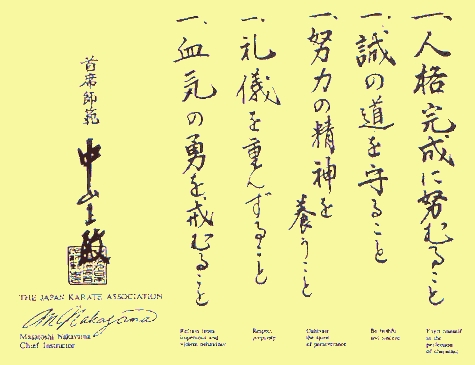 一、人格完成に努むること
一、誠の道を守ること
一、努力の精神を養うこと
一、礼儀を重んずること
一、血気の勇を戒むること
首席師範
中山正敏
THE JAPAN KARATE ASSOCIATION
M Nakayama
Masatoshi Nakayama
Chief Instructor
Refrain from
impetuous and
violent behaviour
Respect
propriety
Cultivate
the spirit
of perseverance
Be faithful
and sincere
Exert oneself
in the
perfection
of character